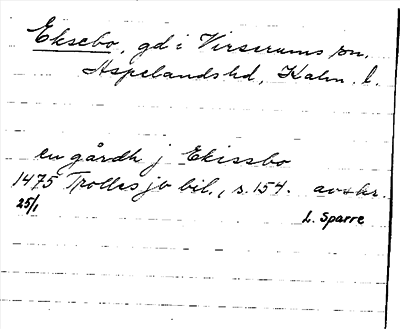 Eksebo, gd i Virserums sn.
Aspelands hd, Kalm. l.
en gårdh j Ekissbo
1475 Trolles jo bil., s. 154. avskr.
25/1
L. Sparre